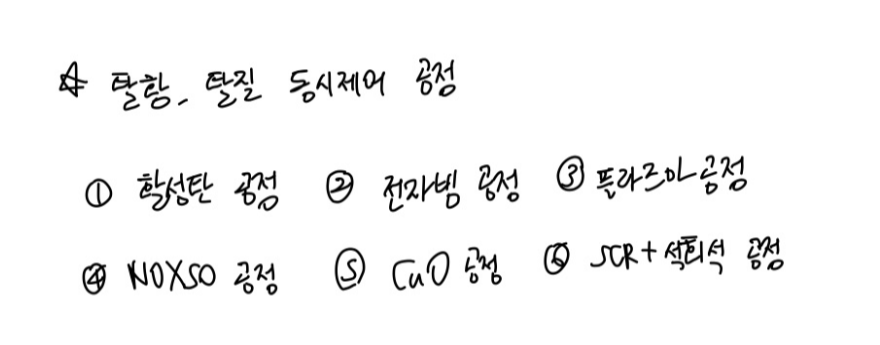 ☆ 탈황, 탈질 동시제어 공정
① 활성탄 공정 ② 전자빔 공정 ③ 플라즈마 공정
④ NOXSO 공정 ⑤ CuO 공정 ⑥ SCR+석회석 공정